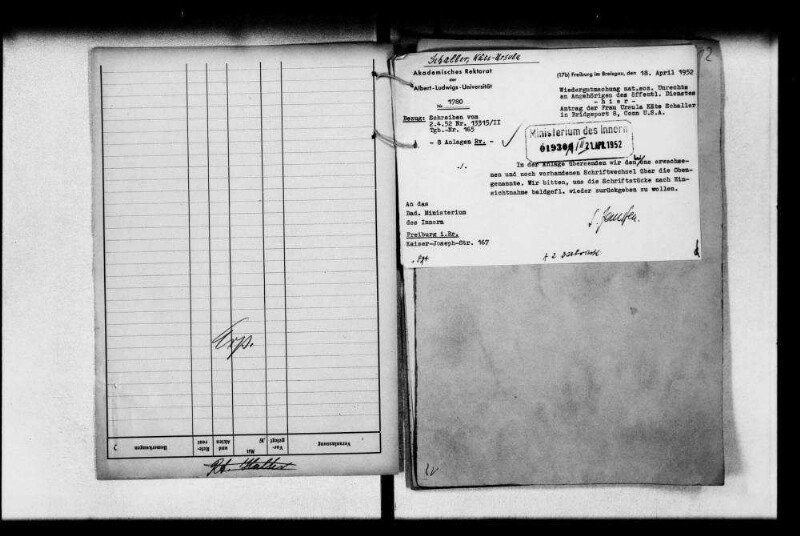 Exp.
Bemerkungen
Akten
und
Mit
Veranlassung
Schaller, Käte-Ursula
Akademisches Rektorat
der
Albert-Ludwigs-Universität
Nr. 1780
Bezug: Schreiben vom
2.4.52 Nr. 13315/II
Tgb.-Nr. 165
- 8 Anlagen Rv. -
(17b) Freiburg im Breisgau, den 18. April 1952
Wiedergutmachung nat.soz. Unrechts
an Angehörigen des öffentl. Dienstes
- hier -
Antrag der Frau Ursula Käte Schaller
in Bridgeport 8, Conn U.S.A.
Ministerium des Innern
21.APR.1952
./.
In der Anlage übersenden wir den uns erwachse-
nen und noch vorhandenen Schriftwechsel über die Oben-
genannte. Wir bitten, uns die Schriftstücke nach Ein-
sichtnahme baldgefl. wieder zurückgeben zu wollen.
An das
Bad. Ministerium
des Innern
Freiburg i.Br.
Kaiser-Joseph-Str. 167